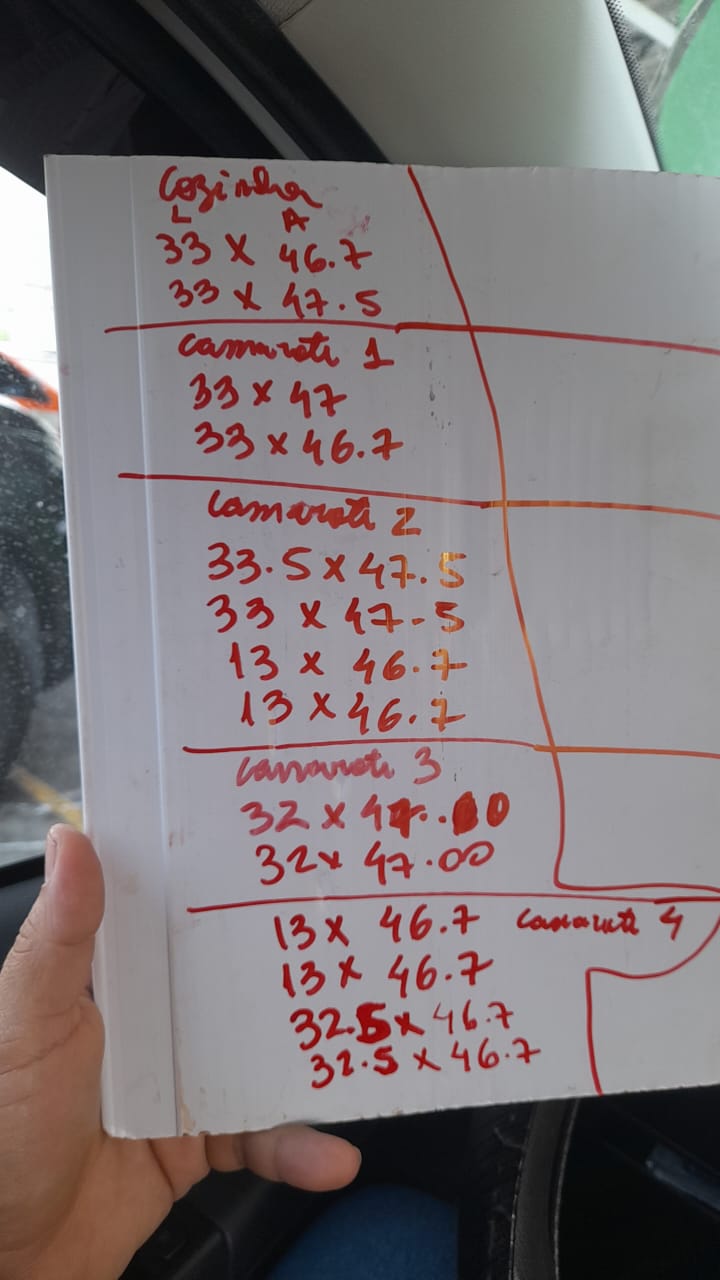 Cozinha
L A
33 x 46.7
33 x 47.5
camarote 1
33 x 47
33 x 46.7
camarote 2
33.5 x 47.5
33 x 47.5
13 x 46.7
13 x 46.7
camarote 3
32 x 47.00
32 x 47.00
13 x 46.7 camarote 4
13 x 46.7
32.5 x 46.7
32.5 x 46.7